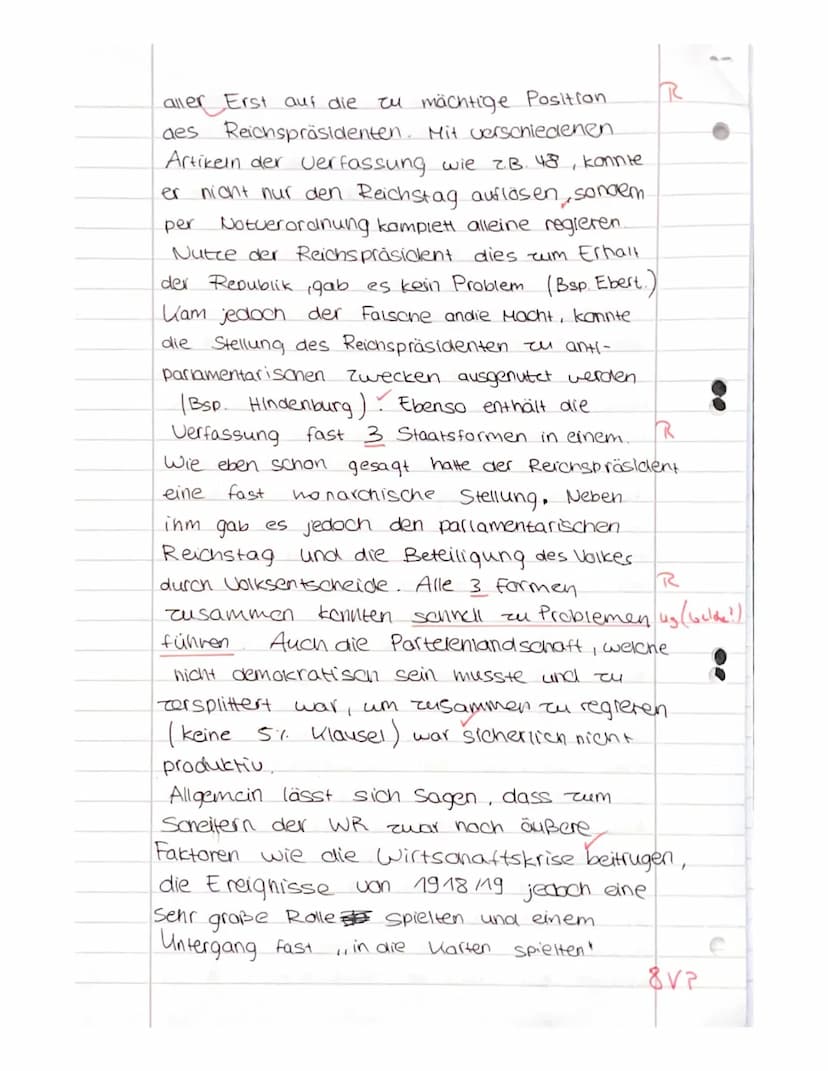 aller Erst auf die zu mächtige Position R
des Reichspräsidenten. Mit verschiedenen
Artikeln der Verfassung wie z.B. 48, konnte
er nicht nur den Reichstag auflösen, sondern
per Notverordnung komplett alleine regieren.
Nutze der Reichspräsident dies zum Erhalt
der Republik, gab es kein Problem (Bsp. Ebert.)
Kam jedoch der Falsche andie Macht, konnte
die Stellung des Reichspräsidenten zu anti-
parlamentarischen Zwecken ausgenutzt werden
(Bsp. Hindenburg). Ebenso enthält die
Verfassung fast 3 Staatsformen in einem. R
Wie eben schon gesagt hatte der Reichspräsident
eine fast monarchische Stellung. Neben
ihm gab es jedoch den parlamentarischen
Reichstag und die Beteiligung des Volkes
durch Volksentscheide. Alle 3 Formen R
zusammen konnten schnell zu Problemen ug (welche?)
führen. Auch die Parteienlandschaft, welche
nicht demokratisch sein musste und zu
zersplittert war, um zusammen zu regieren
(keine 5% Klausel) war sicherlich nicht
produktiv.
Allgemein lässt sich Sagen, dass zum
Scheitern der WR zwar noch äußere
Faktoren wie die Wirtschaftskrise beitrugen,
die Ereignisse von 1918/19 jedoch eine
Sehr große Rolle spielten und einem
Untergang fast „in die Karten spielten"
8VP